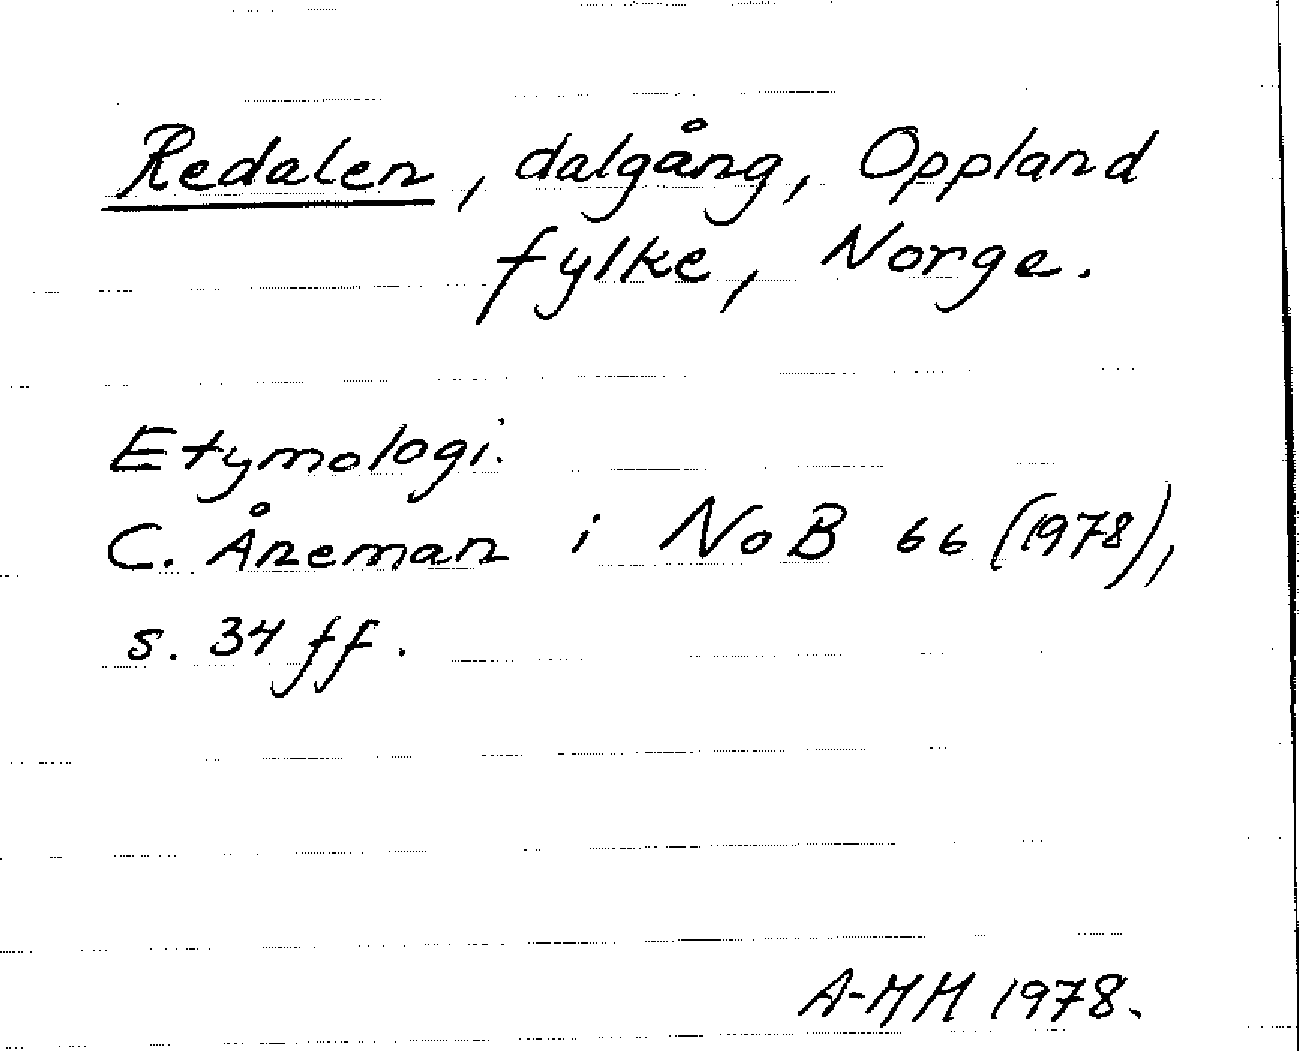 Redalen, dalgång, Oppland
fylke, Norge.
Etymologi.
C. Åneman i NoB 66 (1978),
s. 34 ff.
A-MH 1978.